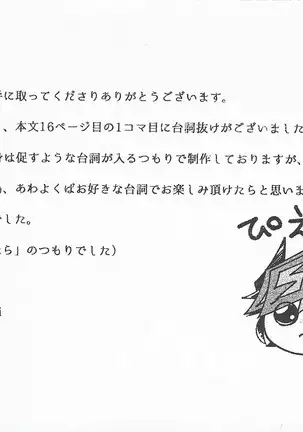 に取ってくださりありがとうございます。
、本文16ページ目の1コマ目に台詞抜けがございました
は促すような台詞が入るつもりで制作しておりますが、
、あわよくばお好きな台詞でお楽しみ頂けたらと思いま
でした。
ら」のつもりでした）
ぴえ
i